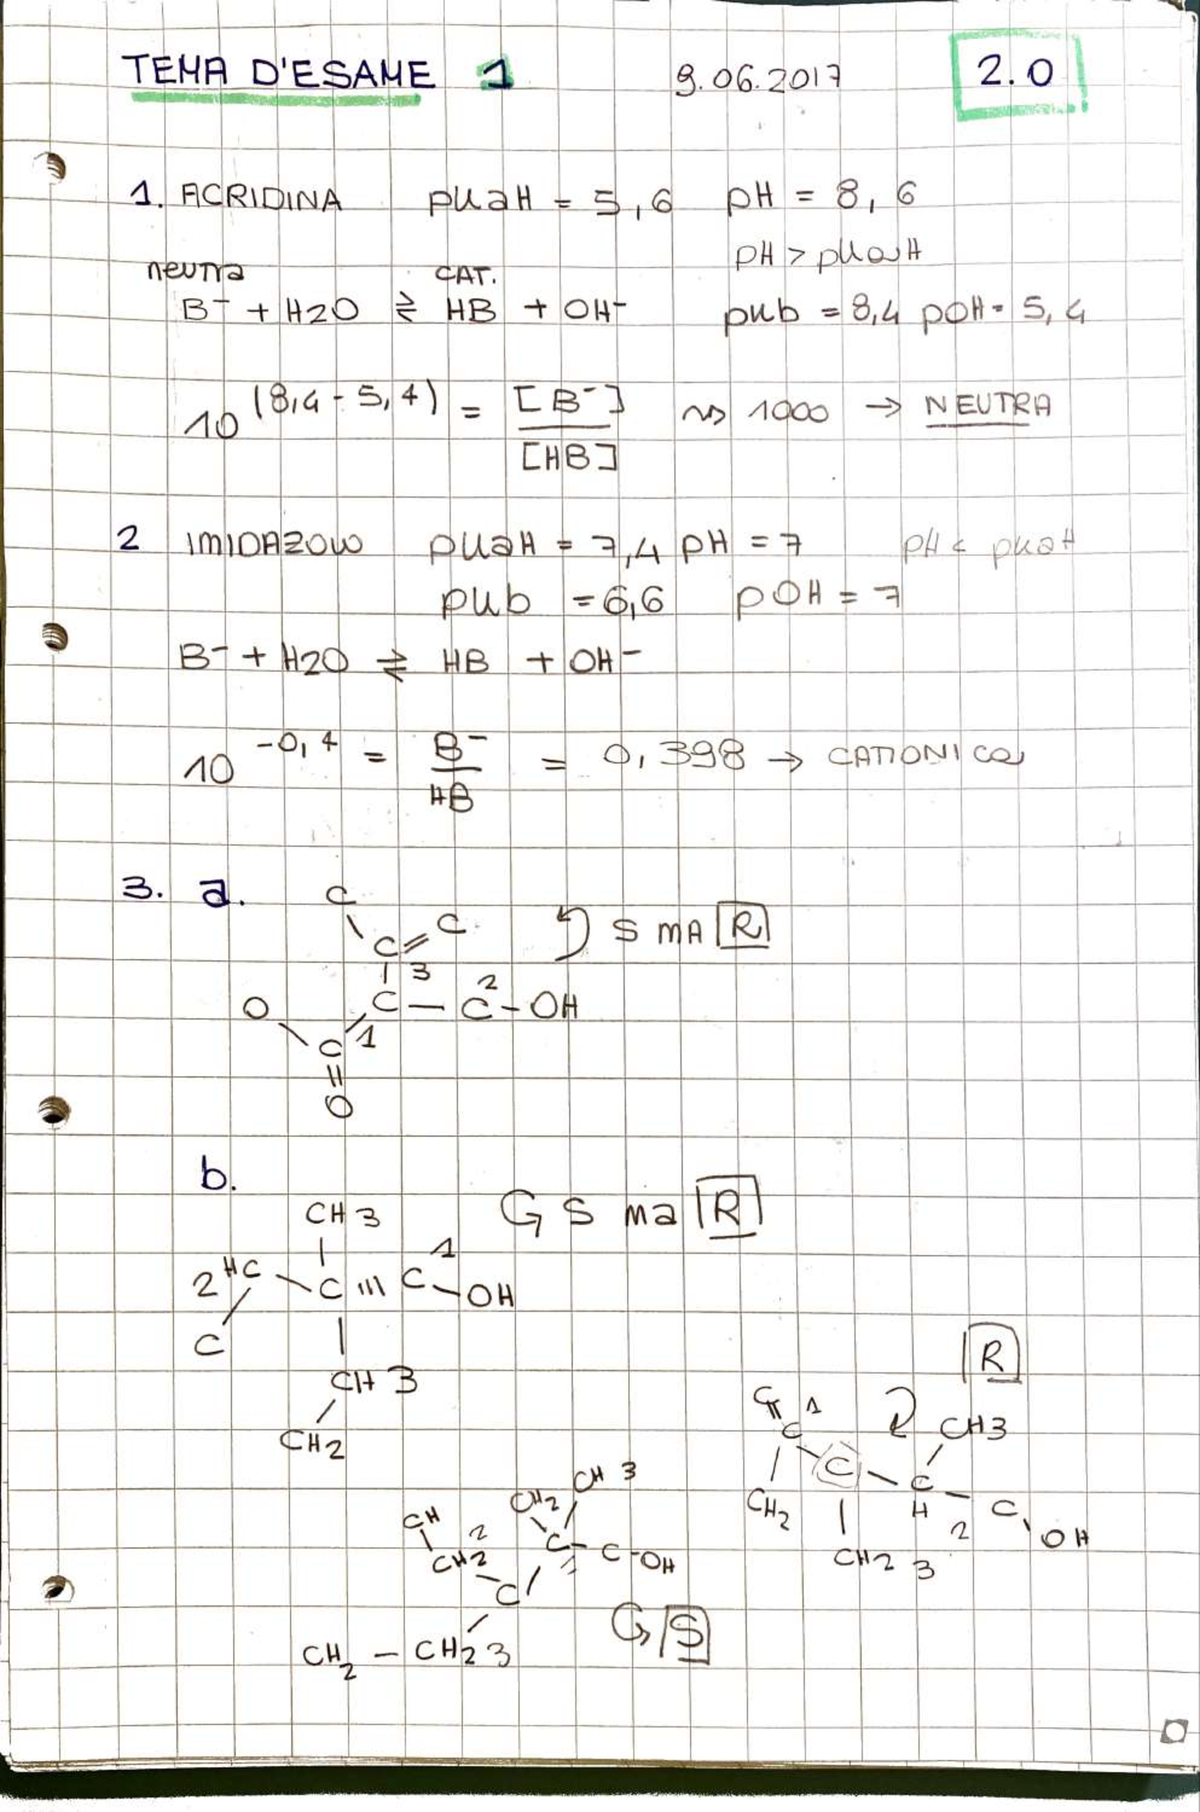 TEMA D'ESAME 1 9.06.2017 2.0
1. ACRIDINA pKaH = 5,6 pH = 8,6
pH > pKaH
neutra CAT.
B⁻ + H2O ⇌ HB + OH⁻ pKb = 8,4 pOH = 5,4
10^(8,4 - 5,4) = [B⁻] / [HB] ⇝ 1000 → NEUTRA
2 IMIDAZOLO pKaH = 7,4 pH = 7 pH < pKaH
pKb = 6,6 pOH = 7
B⁻ + H2O ⇌ HB + OH⁻
10^-0,4 = B⁻ / HB = 0,398 → CATIONICA
3. a.
C
C = C S MA R
3 2
O C - C - OH
C 1
O
b.
CH3 S ma R
1
2 HC C C OH
C
CH 3
CH2
R
C 1 CH3
C C C H C OH
CH2 CH2 3 2
CH 3
CH CH2
CH2 2 C C OH
C S
CH2 - CH2 3